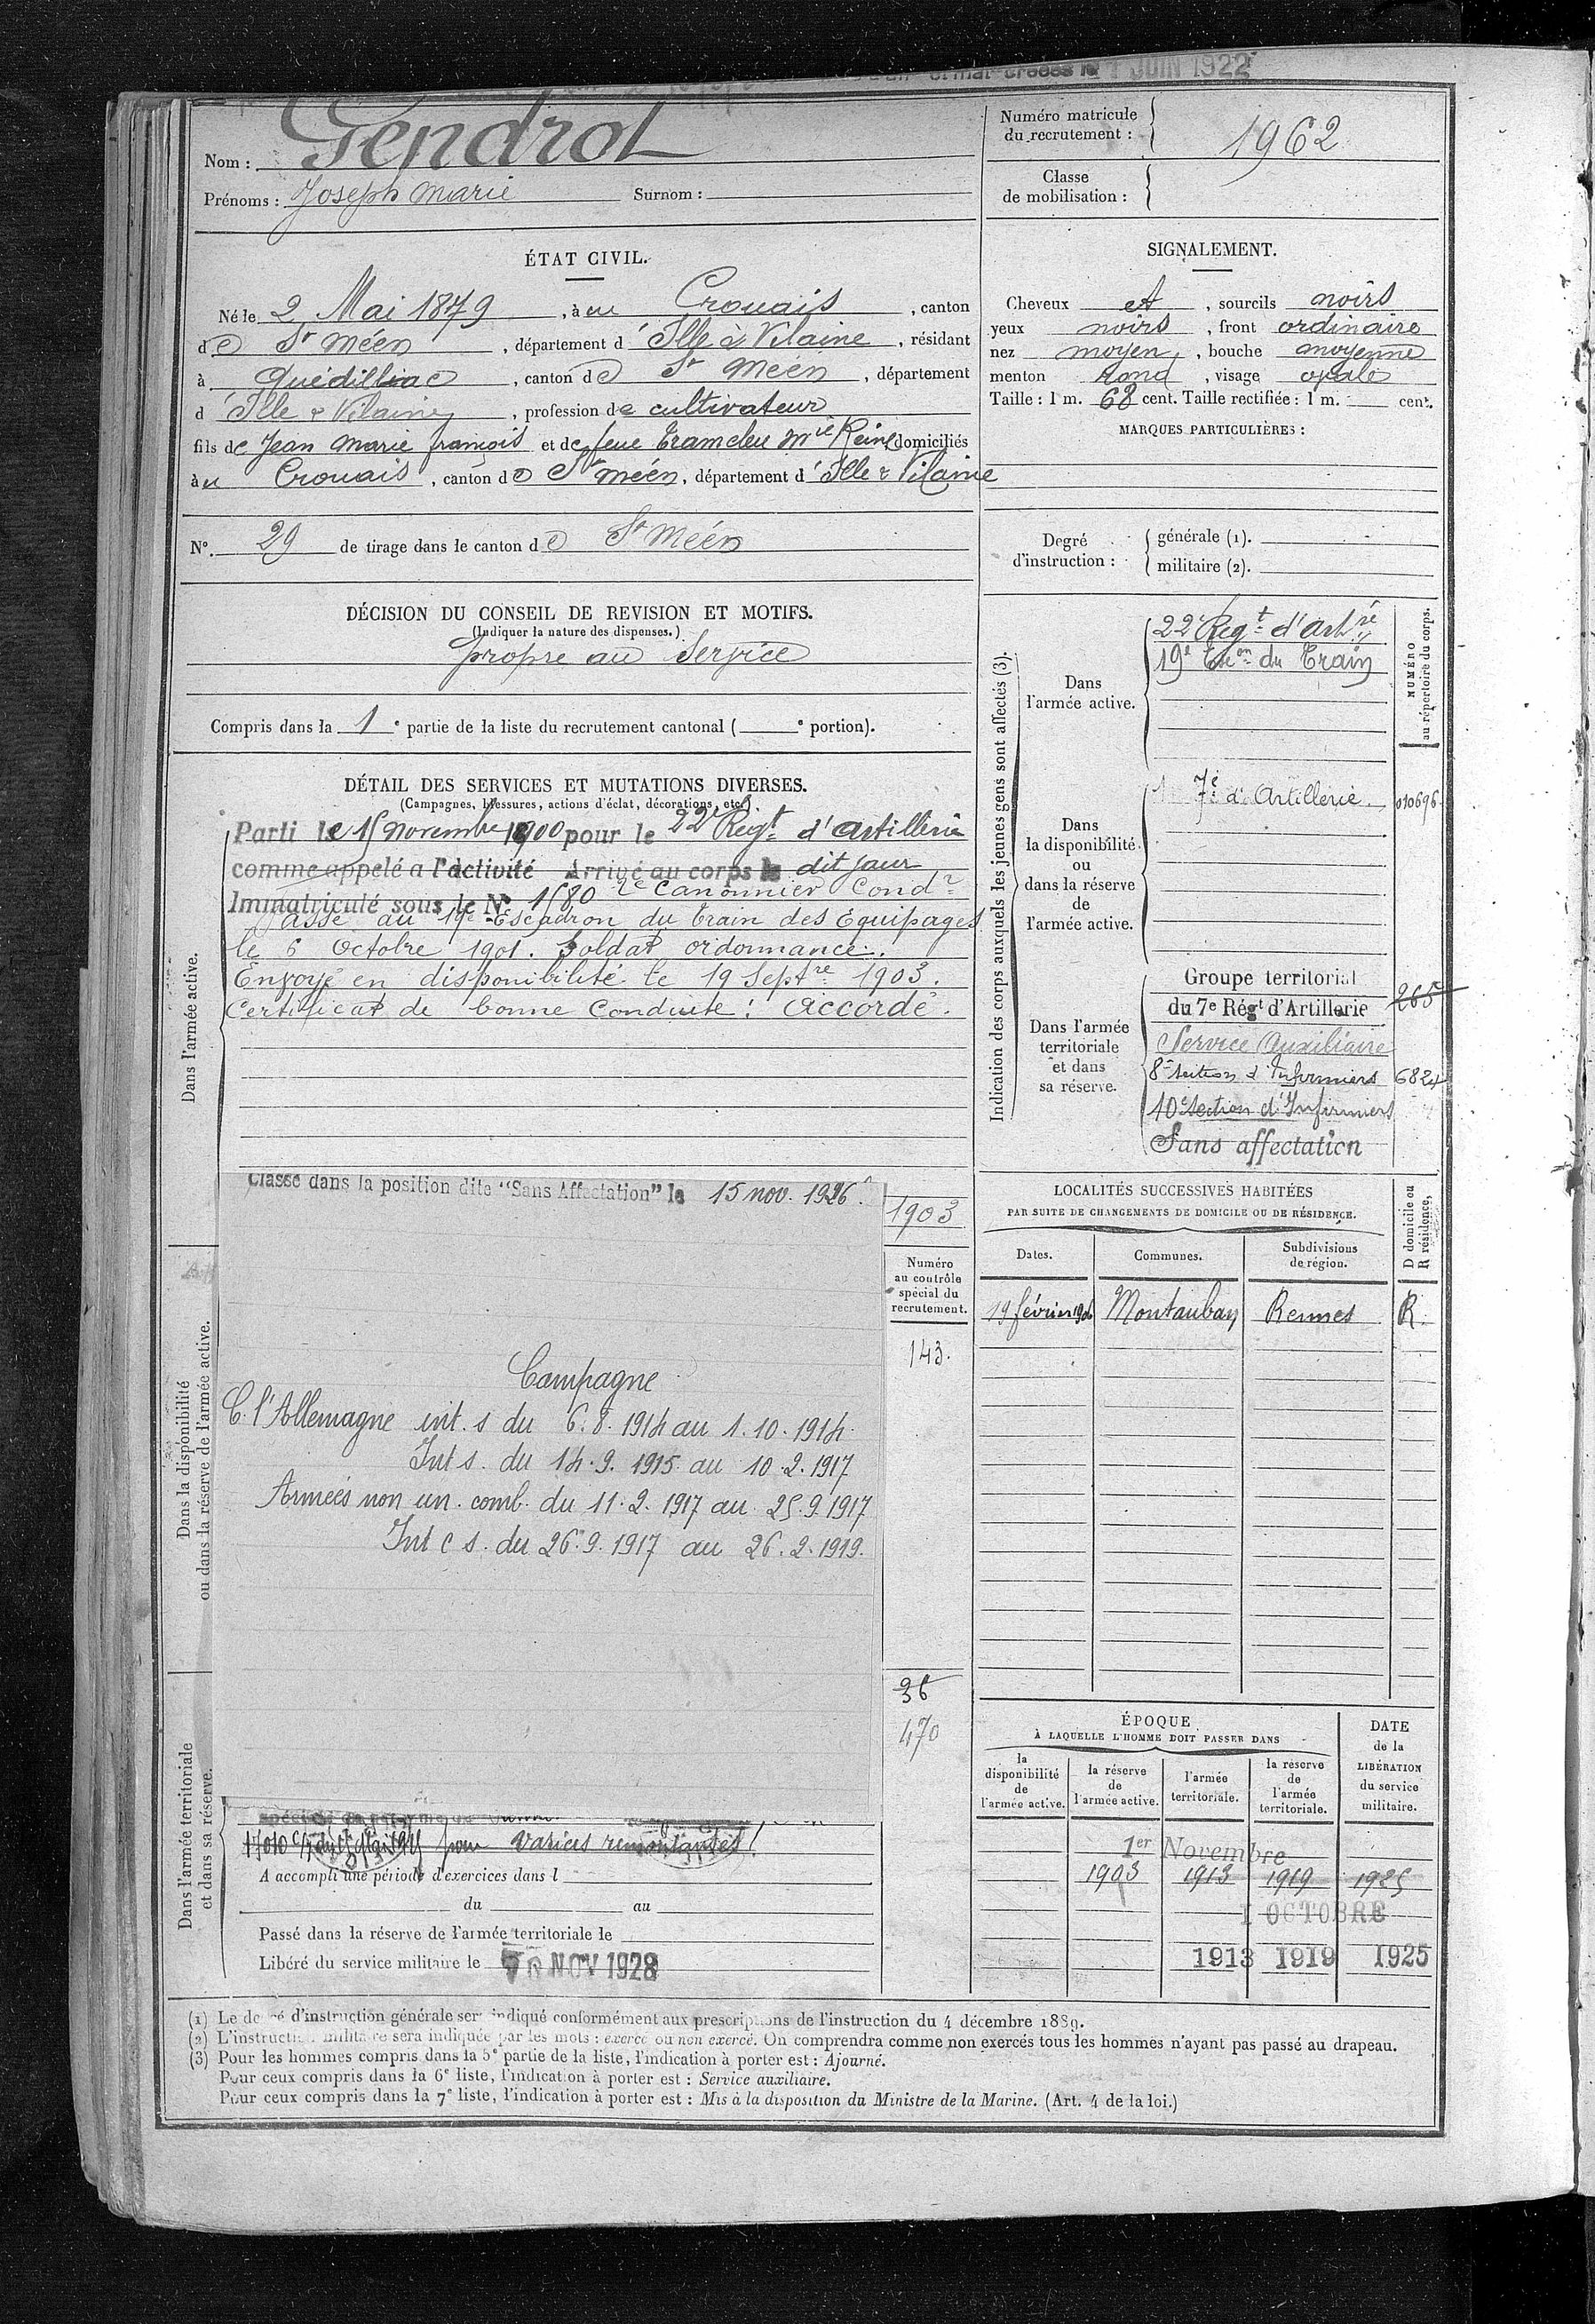 1 JUIN 1922
Nom : Gendrot
Prénoms : Joseph Marie Surnom :
Numéro matricule du recrutement : 1962
Classe de mobilisation :
ÉTAT CIVIL.
Né le 2 Mai 1879, à u Crouais, canton
de St Méen, département d'Ille & Vilaine, résidant
à Quédillac, canton de St Méen, département
d'Ille & Vilaine, profession de cultivateur
fils de Jean Marie françois et de feue Mie Reine domiciliés
au Crouais, canton de St Méen, département d'Ille & Vilaine
N°. 29 de tirage dans le canton de St Méen
SIGNALEMENT.
Cheveux et, sourcils noirs
yeux noirs, front ordinaire
nez moyen, bouche moyenne
menton rond, visage ovale
Taille : 1 m. 68 cent. Taille rectifiée : 1 m. cent.
MARQUES PARTICULIÈRES :
Degré d'instruction :
générale (1).
militaire (2).
DÉCISION DU CONSEIL DE REVISION ET MOTIFS.
(Indiquer la nature des dispenses.)
propre au Service
Compris dans la 1e partie de la liste du recrutement cantonal ( e portion).
DÉTAIL DES SERVICES ET MUTATIONS DIVERSES.
(Campagnes, blessures, actions d'éclat, décorations, etc.)
Dans l'armée active.
Parti le 15 novembre 1900 pour le 22e Regt d'artillerie
comme appelé a l'activité Arrivé au corps le dit jour
Immatriculé sous le N° 1580 2e Canonnier Condr
Passé au 19e Escadron du Train des Equipages
le 6 Octobre 1901. Soldat ordonnance.
Envoyé en disponibilité le 19 Septre 1903.
Certificat de bonne Conduite : Accordé.
Classé dans la position dite "Sans Affectation" le 15 nov. 1926.
1903
Numéro au contrôle spécial du recrutement.
143.
Dans la disponibilité ou dans la réserve de l'armée active.
Campagne
C. l'Allemagne int. s du 6.8.1914 au 1.10.1914
Int s. du 14.9.1915 au 10.2.1917
Armées non un. comb. du 11.2.1917 au 25.9.1917
Int c s. du 26.9.1917 au 26.2.1919.
36
470
Dans l'armée territoriale et dans sa réserve.
pour varices remontantes
A accompli une période d'exercices dans l
du au
Passé dans la réserve de l'armée territoriale le
Libéré du service militaire le NOV 1928
Indication des corps auxquels les jeunes gens sont affectés (3).
NUMÉRO au répertoire du corps.
Dans l'armée active.
22e Regt d'Artrie
19e Escon du Train
Dans la disponibilité ou dans la réserve de l'armée active.
7e d'Artillerie. 010696
Dans l'armée territoriale et dans sa réserve.
Groupe territorial
du 7e Régt d'Artillerie 265
Service Auxiliaire
8e section d'Infirmiers 6824
10e section d'Infirmiers
Sans affectation
LOCALITÉS SUCCESSIVES HABITÉES
PAR SUITE DE CHANGEMENTS DE DOMICILE OU DE RÉSIDENCE.
Dates. Communes. Subdivisions de région. D domicile ou R résidence.
19 février 1906 Montauban Rennes R.
ÉPOQUE
À LAQUELLE L'HOMME DOIT PASSER DANS
la disponibilité de l'armée active.
la réserve de l'armée active.
l'armée territoriale.
la réserve de l'armée territoriale.
DATE de la LIBÉRATION du service militaire.
1er Novembre
1903 1913 1919 1925
1 OCTOBRE
1913 1919 1925
(1) Le degré d'instruction générale sera indiqué conformément aux prescriptions de l'instruction du 4 décembre 1889.
(2) L'instruction militaire sera indiquée par les mots : exercé ou non exercé. On comprendra comme non exercés tous les hommes n'ayant pas passé au drapeau.
(3) Pour les hommes compris dans la 5e partie de la liste, l'indication à porter est : Ajourné.
Pour ceux compris dans la 6e liste, l'indication à porter est : Service auxiliaire.
Pour ceux compris dans la 7e liste, l'indication à porter est : Mis à la disposition du Ministre de la Marine. (Art. 4 de la loi.)